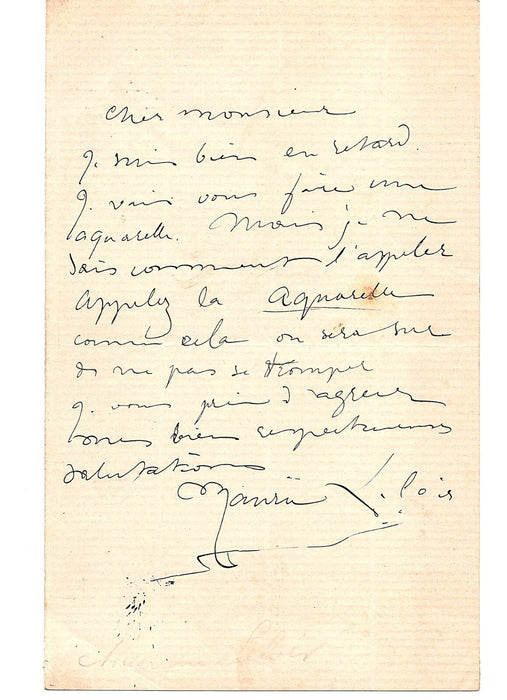 Cher monsieur
Je suis bien en retard.
Je vais vous faire une
aquarelle. Mais je ne
sais comment l'appeler
appelez la aquarelle
comme cela on sera sur
de ne pas se tromper
je vous prie d'agréer
mes bien respectueuses
salutations
Maurice Leloir